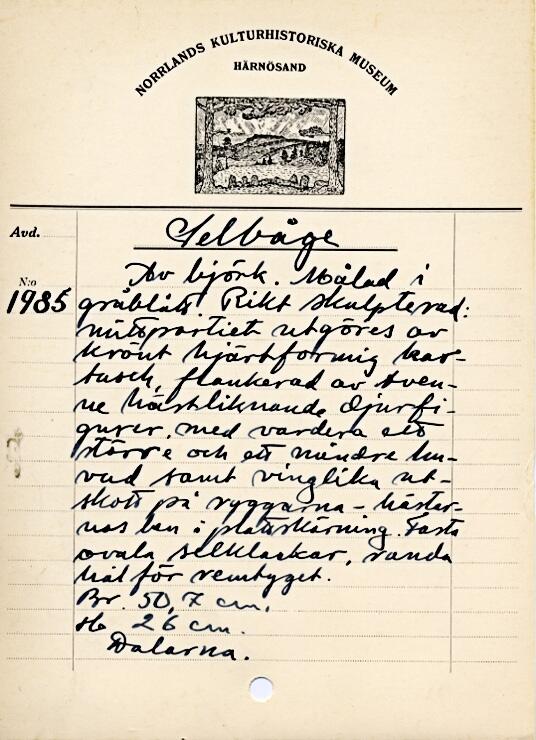 NORRLANDS KULTURHISTORISKA MUSEUM
HÄRNÖSAND
Avd.
Selbåge
N:o
1985
Av björk. Målad i
gråblått. Rikt skulpterad:
mittpartiet utgöres av
krönt hjärtformig kar-
tusch, flankerad av tven-
ne hästliknande djurfi-
gurer, med vardera ett
större och ett mindre hu-
vud samt vinglika ut-
skott på ryggarna - häster-
nas ben i platskärning. Fasta
ovala selklackar, runda
hål för remtyget.
Br. 50,7 cm.
H. 26 cm.
Dalarna.